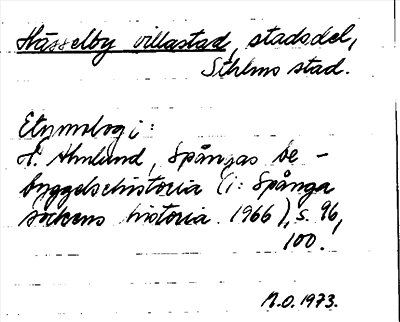 Hässelby villastad, stadsdel,
Sthlms stad.
Etymologi:
N. Ahnlund, Spångas be-
byggelsehistoria (i: Spånga
sockens historia. 1966), s. 96,
100.
N.O. 1973.